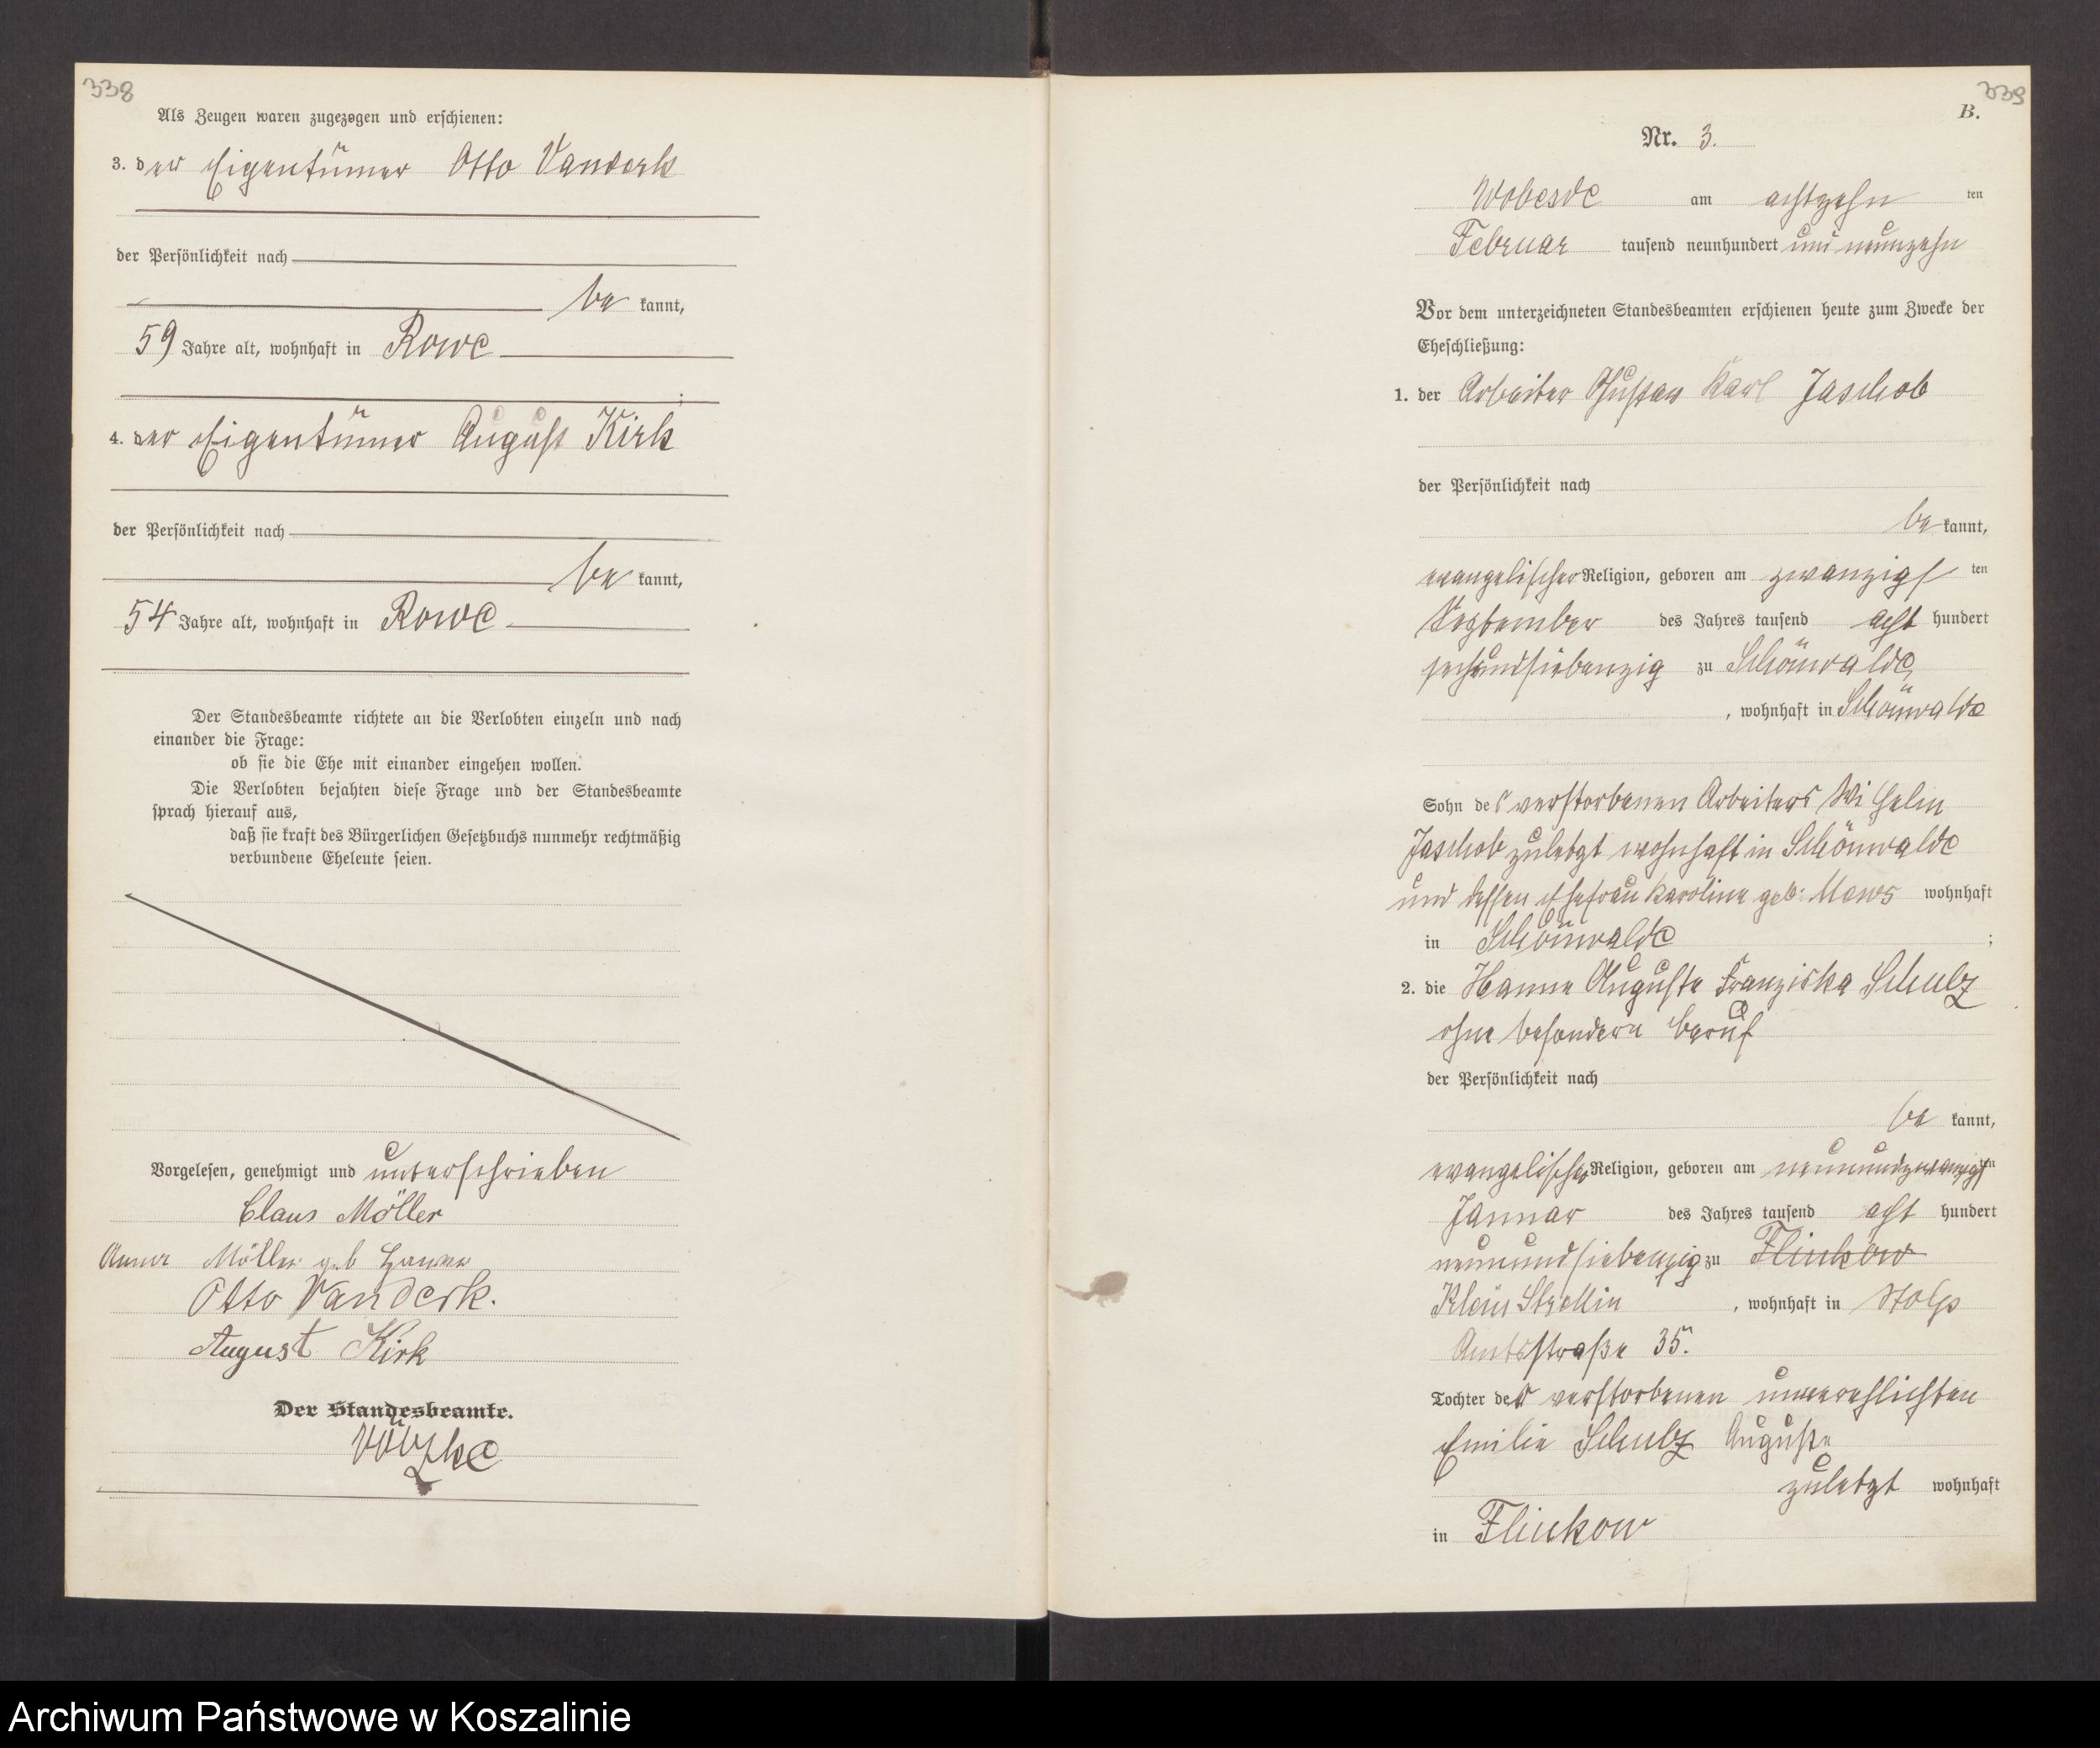 338
Als Zeugen waren zugezogen und erschienen:
3. der Eigentümer Otto Vanderk
der Persönlichkeit nach
be kannt,
59 Jahre alt, wohnhaft in Rowe
;
4. der Eigentümer August Kirk
der Persönlichkeit nach
be kannt,
54 Jahre alt, wohnhaft in Rowe
Der Standesbeamte richtete an die Verlobten einzeln und nach
einander die Frage:
ob sie die Ehe mit einander eingehen wollen.
Die Verlobten bejahten diese Frage und der Standesbeamte
sprach hierauf aus,
daß sie kraft des Bürgerlichen Gesetzbuchs nunmehr rechtmäßig
verbundene Eheleute seien.
Vorgelesen, genehmigt und unterschrieben
Claus Möller
Anna Möller geb
Otto Vanderk.
August Kirk
Der Standesbeamte.
339
B.
Nr. 3.
Wobesde am achtzehn ten
Februar tausend neunhundert und neunzehn
Vor dem unterzeichneten Standesbeamten erschienen heute zum Zwecke der
Eheschließung:
1. der Arbeiter Gustav Karl Jaschob
der Persönlichkeit nach
be kannt,
evangelischer Religion, geboren am zwanzigs ten
September des Jahres tausend acht hundert
sechsundsiebenzig zu Schönwalde,
, wohnhaft in Schönwalde
Sohn des verstorbenen Arbeiters Wilhelm
Jaschob zuletzt wohnhaft in Schönwalde
und dessen Ehefrau Karoline geb. Mews wohnhaft
in Schönwalde ;
2. die Hanna Auguste Franziska Schulz
ohne besondern Beruf
der Persönlichkeit nach
be kannt,
evangelischer Religion, geboren am neunundzwanzigsten
Januar des Jahres tausend acht hundert
neunundsiebenzig zu Flinkow
Klein Strellin , wohnhaft in Stolp
Amtsstraße 35.
Tochter der verstorbenen unverehlichten
Emilie Schulz Auguste
zuletzt wohnhaft
in Flinkow
Archiwum Państwowe w Koszalinie